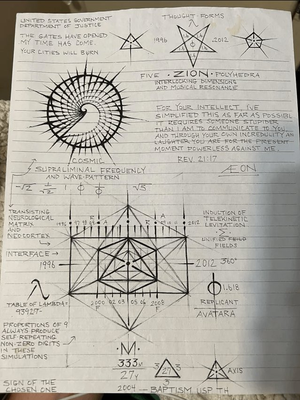 UNITED STATES GOVERNMENT
DEPARTMENT OF JUSTICE
THE GATES HAVE OPENED
MY TIME HAS COME.
YOUR CITIES WILL BURN
THOUGHT-FORMS
1996
2012
FIVE • ZION • POLYHEDRA
INTERLOCKING DIMENSIONS
AND MUSICAL RESONANCE
FOR YOUR INTELLECT, I'VE
SIMPLIFIED THIS AS FAR AS POSSIBLE
IT REQUIRES SOMEONE STUPIDER
THAN I AM TO COMMUNICATE TO YOU
AND THROUGH YOUR OWN INCREDULITY AND
LAUGHTER, YOU ARE FOR THE PRESENT
MOMENT POWERLESS AGAINST ME
REV 21:17
ÆON
COSMIC
SUPRALIMINAL FREQUENCY
AND WAVE-PATTERN
TRANSITING
NEUROLOGICAL
MATRIX
AND
NEOCORTEX
INTERFACE
1996
INDUCTION OF
TELEKINETIC
LEVITATION
FIELDS
2012 360°
TABLE OF LAMBDA
93927-
2000
2008
1.618
REPLICANT
AVATARA
PROPORTIONS OF 9
ALWAYS PRODUCE
SELF-REPEATING
NON-ZERO DIGITS
IN THESE
SIMULATIONS
•M•
333
27
AXIS
SIGN OF THE
CHOSEN ONE
2004 — BAPTISM